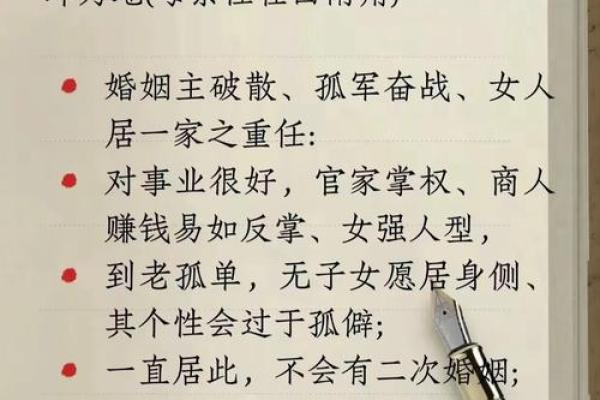 婚姻主破散、孤军奋战、女人
居一家之重任:
对事业很好，官家掌权、商人
赚钱易如反掌、女强人型，
到老孤单，无子女愿居身侧、
其个性会过于孤僻;
一直居此，不会有二次婚姻;